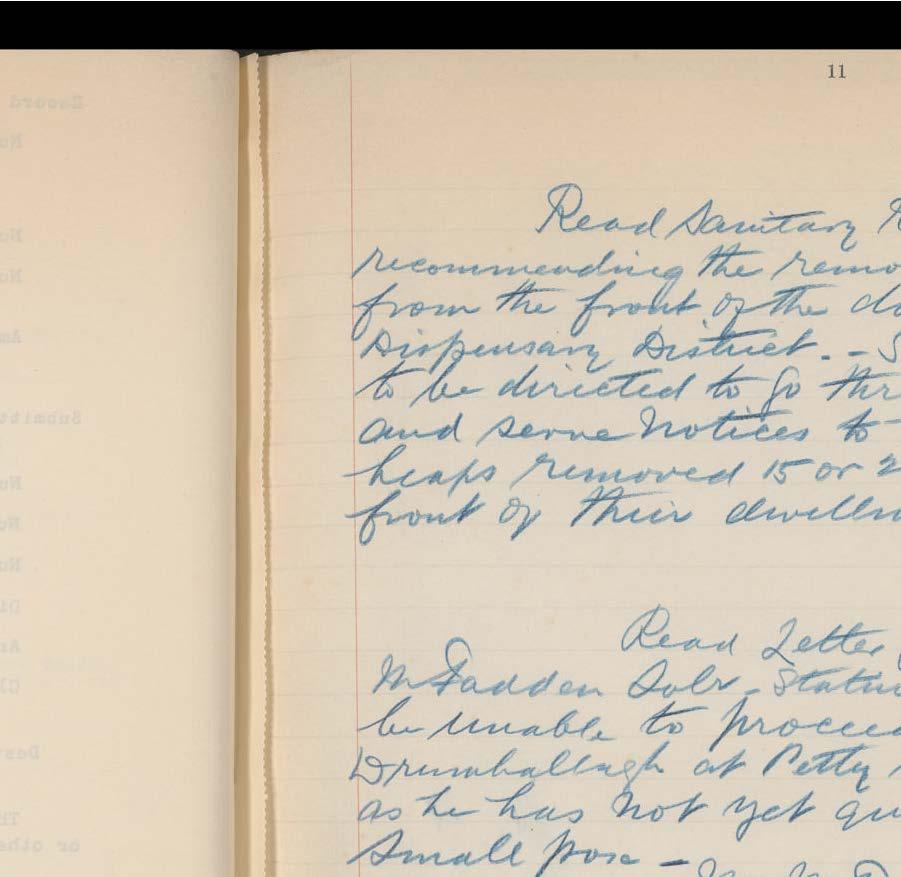 11
Read Sanitary
recommending the remo
from the front of the do
Dispensary District. - S
to be directed to go thr
and serve Notices to
heaps removed 15 or 2
front of their dwellin
Read Letter
McFadden Solr. Stating
be unable to proceed
Drumhallagh at Petty
as he has not yet qu
Small pox -
Record
No
No
No
Am
Submitt
No
No
No
Di
Ar
Cl
Des
Th
or othe